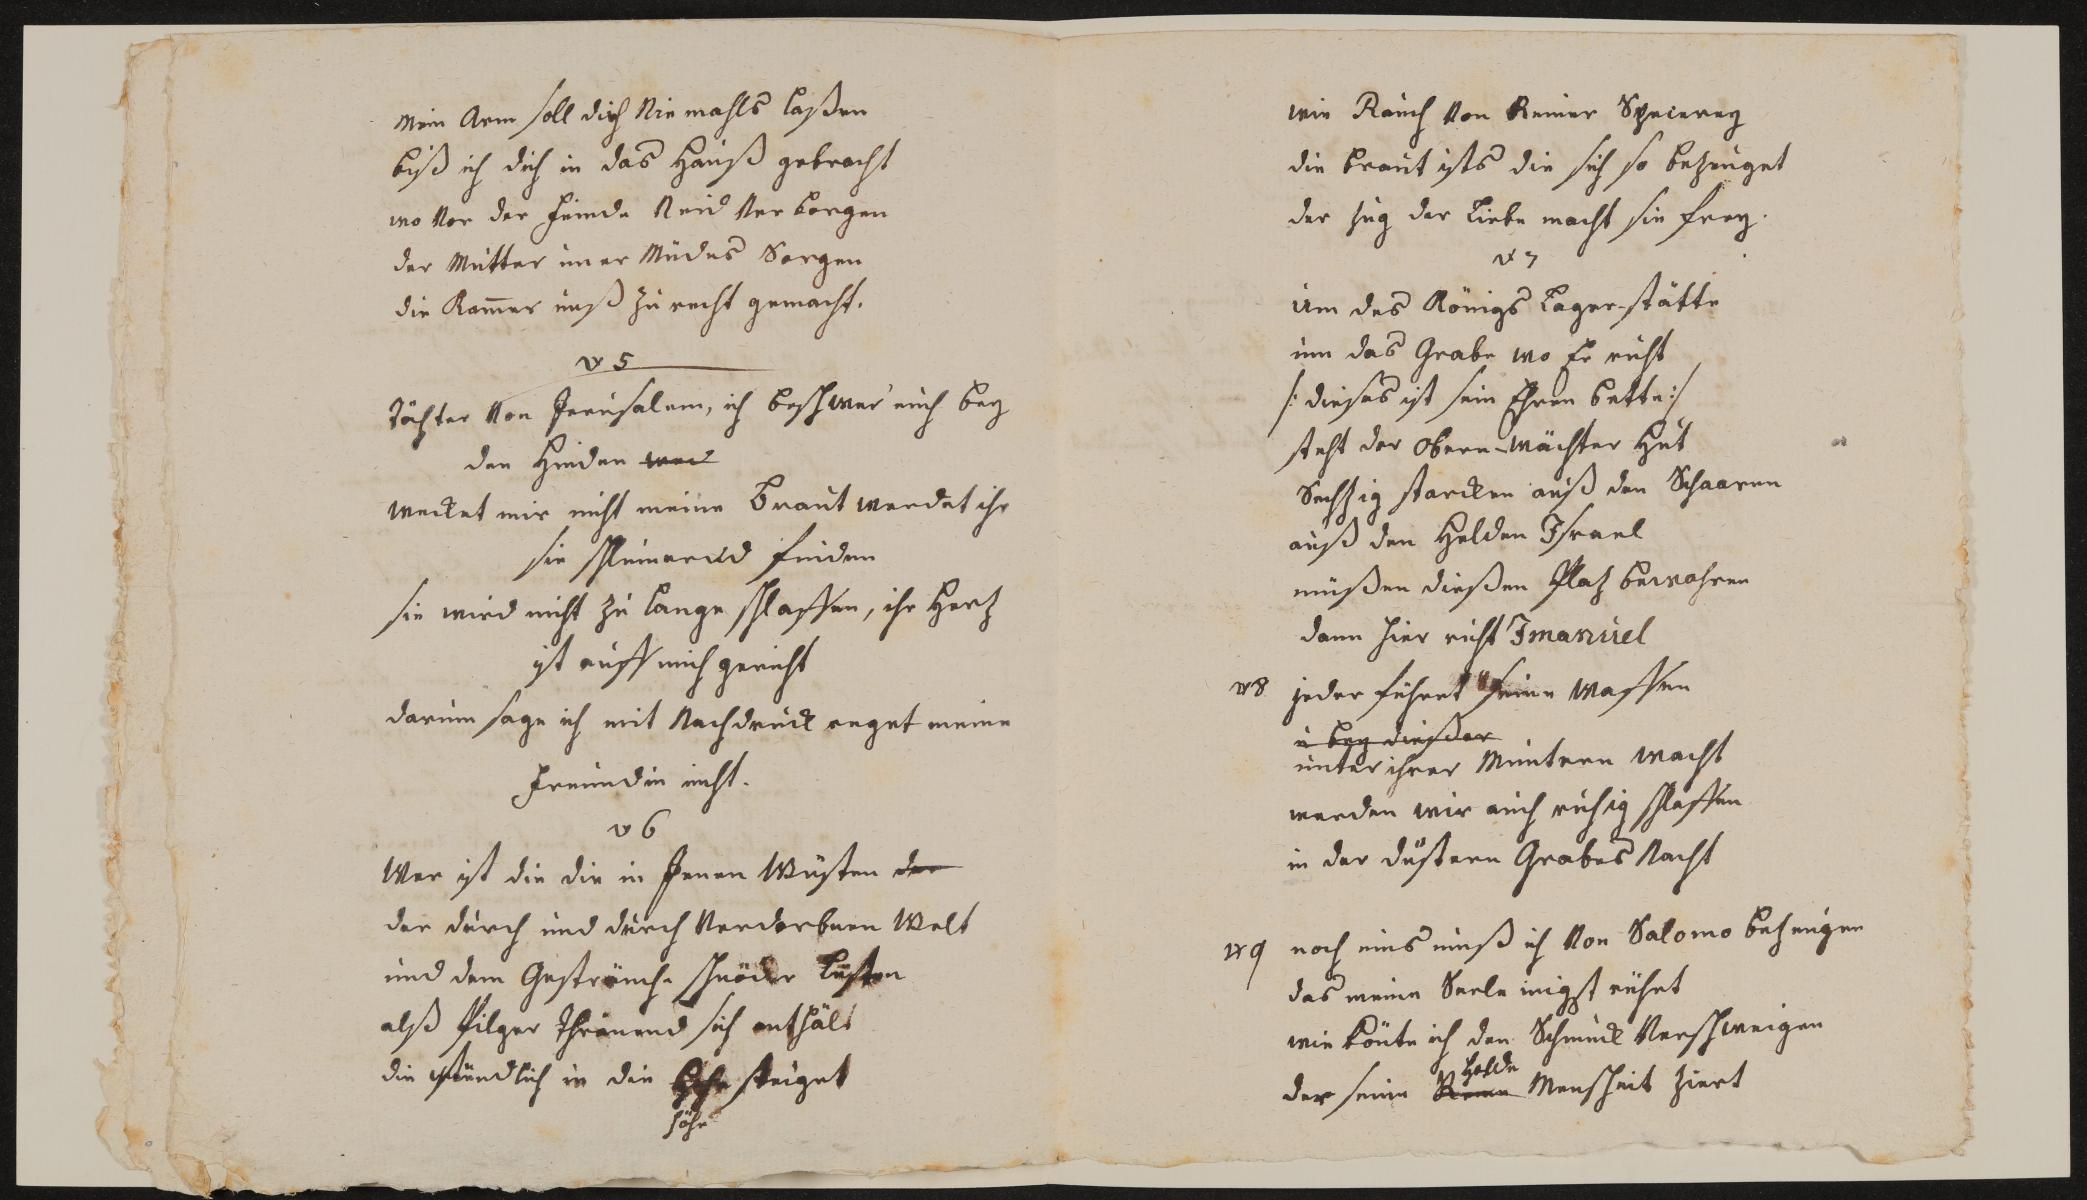 mein Arm soll dich Niemahls laßen
biß ich dich in das Hauß gebracht
wo Vor der Feinde Neid Verborgen
der Mutter nie Müdes Sorgen
die Kam̅er uns zu recht gemacht.
v 5
Töchter Von Jerusalem, ich beschwer euch bey
den Hinden
wecket mir nicht meine Braut werdet ihr
sie schlumernd finden
sie wird nicht zu lange schlaffen, ihr Hertz
ist auff mich gericht
darum sage ich mit Nachdruck reget meine
Freundin nicht.
v 6
Wer ist die die in Jenen Wüsten der
der durch und durch Verdorbnen Welt
und dem Gesträuche schnöder Lüsten
alß Pilger Thränend sich enthält
die stündlich in die steiget
höhe
wie Rauch Von Reiner Spezerey
die braut ists die sich so bezeuget
der Zug der Liebe macht sie frey.
v 7
um des Königs Lager-stätte
um das Grabe wo Er ruht
/: dieses ist sein Ehren bette :/
steht der obern-Wächter Hut
Sechzig starcken auß den Schaaren
auß den Helden Israel
müßen dießen Platz bewahren
dann hier ruht Imanuel
v 8 jeder führet seine Waffen
u bey dießer
unter ihrer Muntern Wacht
werden wir auch ruhig schlaffen
in der düstern Grabes Nacht
v 9 noch eins muß ich Von Salomo bezeugen
das meine Seele innigst rührt
wie könte ich den Schmuck Verschweigen
Holde
der seine Menschheit ziert